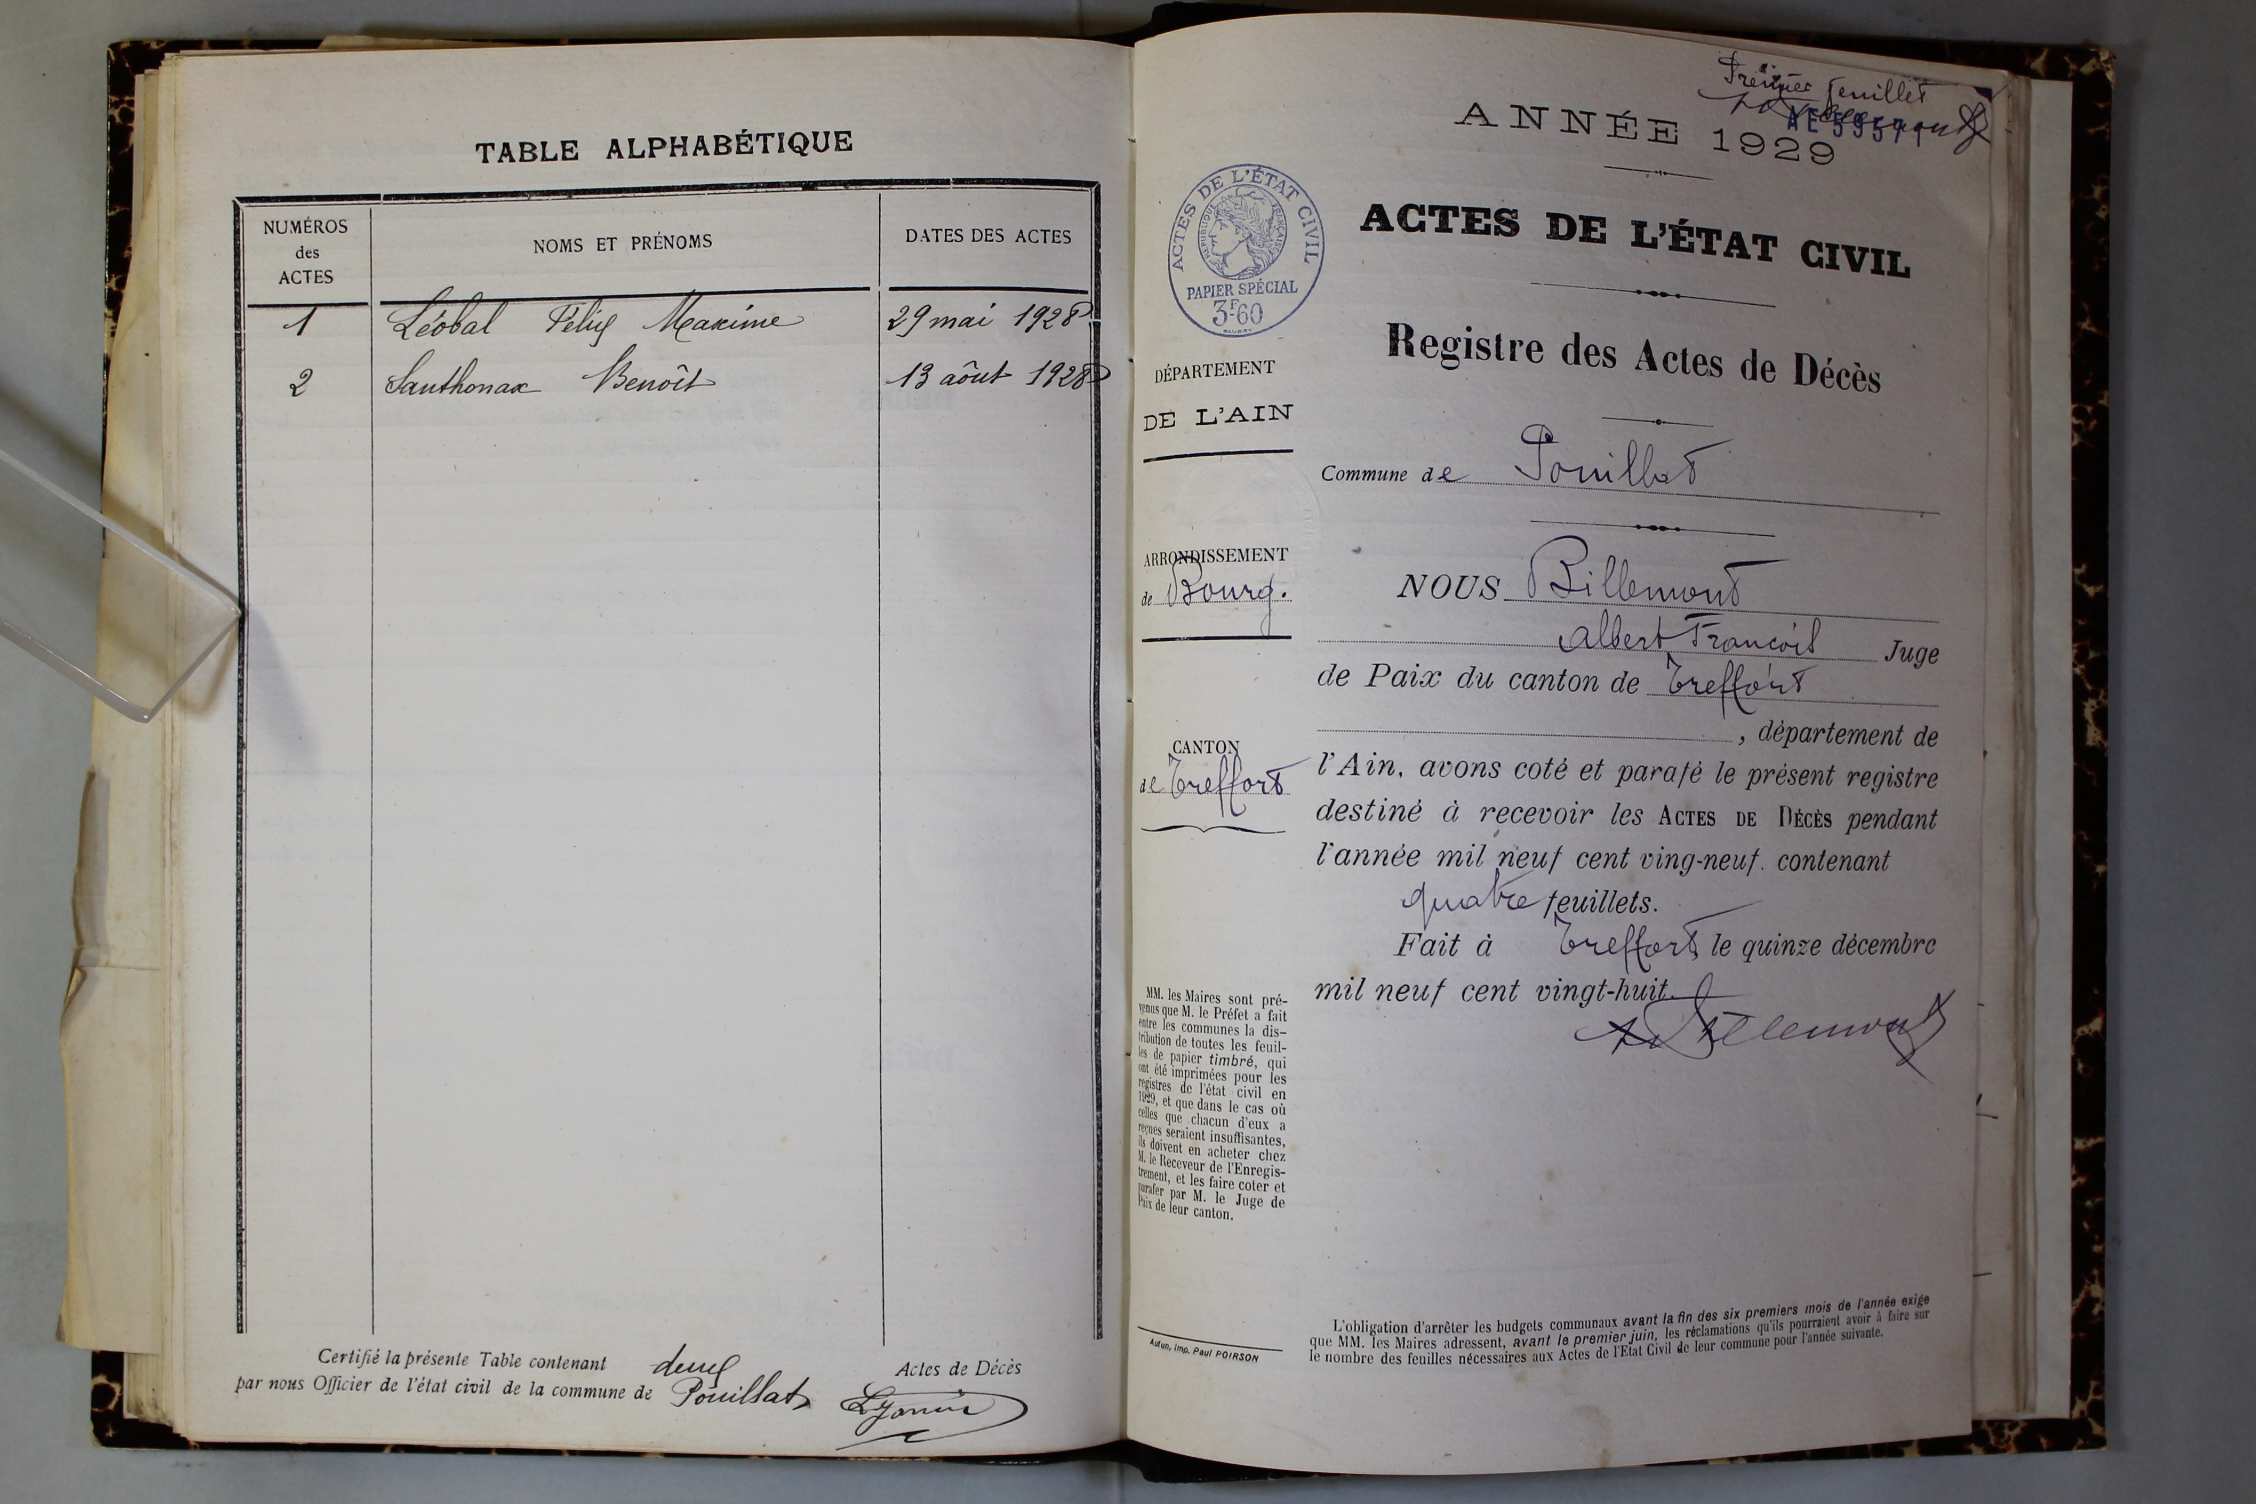 TABLE ALPHABÉTIQUE
NUMÉROS
des
ACTES
NOMS ET PRÉNOMS
DATES DES ACTES
1 Léobal Félix Maxime 29 mai 1928
2 Santhonax Benoît 13 aôut 1928
Certifié la présente Table contenant deux Actes de Décès
par nous Officier de l'état civil de la commune de Pouillat
Premier feuillet
AE 59571
ANNÉE 1929
ACTES DE L'ÉTAT CIVIL
RÉPUBLIQUE FRANÇAISE
PAPIER SPÉCIAL
3F60
ACTES DE L'ÉTAT CIVIL
Registre des Actes de Décès
DÉPARTEMENT
DE L'AIN
Commune de Pouillat
ARRONDISSEMENT
de Bourg.
CANTON
de Treffort
NOUS Billemont
Albert François Juge
de Paix du canton de Treffort
, département de
l'Ain, avons coté et parafé le présent registre
destiné à recevoir les ACTES DE DÉCÈS pendant
l'année mil neuf cent ving-neuf. contenant
quatre feuillets.
Fait à Treffort le quinze décembre
mil neuf cent vingt-huit.
A Billemont
MM. les Maires sont pré-
venus que M. le Préfet a fait
entre les communes la dis-
tribution de toutes les feuil-
les de papier timbré, qui
ont été imprimées pour les
registres de l'état civil en
1929, et que dans le cas où
celles que chacun d'eux a
reçues seraient insuffisantes,
ils doivent en acheter chez
M. le Receveur de l'Enregis-
trement, et les faire coter et
parafer par M. le Juge de
Paix de leur canton.
Autun, Imp. Paul POIRSON
L'obligation d'arrêter les budgets communaux avant la fin des six premiers mois de l'année exige
que MM. les Maires adressent, avant le premier juin, les réclamations qu'ils pourraient avoir à faire sur
le nombre des feuilles nécessaires aux Actes de l'Etat Civil de leur commune pour l'année suivante.